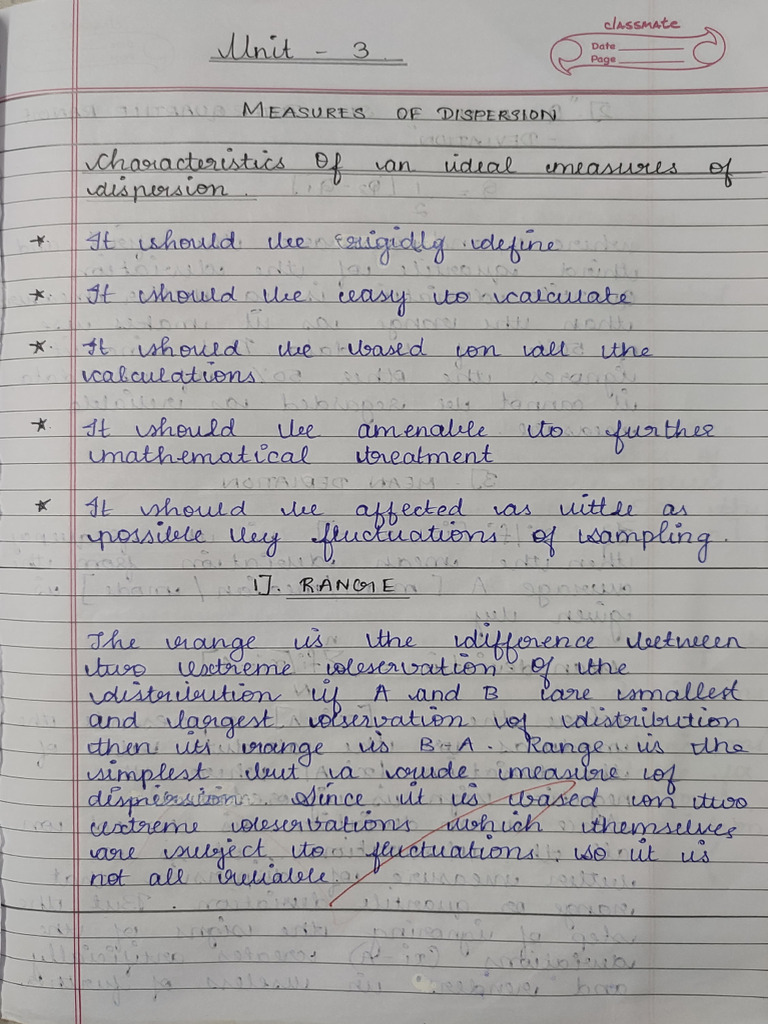 Unit - 3
classmate
Date
Page
MEASURES OF DISPERSION
Characteristics Of an ideal measures of
dispersion.
* It should be rigidly define
* It should be easy to calculate
* It should be based on all the
calculations
* It should be amenable to further
mathematical treatment
* It should be affected as little as
possible by fluctuations of sampling.
1). RANGE
The range is the difference between
two extreme observation of the
distribution if A and B are smallest
and largest observation of distribution
then its range is B-A. Range is the
simplest but a crude measure of
dispersion. Since it is based on two
extreme observations which themselves
are subject to fluctuations, so it is
not all reliable.